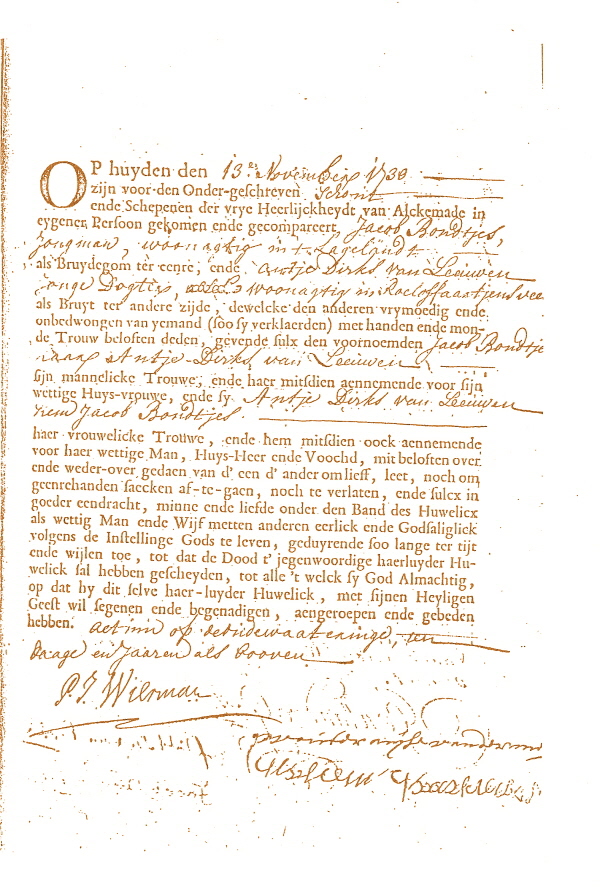 OP huyden den 13e November 1730
zijn voor den Onder-geschreven Schout
ende Schepenen der vrye Heerlijckheydt van Alckemade in
eygener Persoon gekomen ende gecompareert, Jacob Bondtjes,
jongman, woonagtig in
als Bruydegom ter eenre, ende Antje Dirks van Leeuwen
Jonge Dogter, woonagtig in Roeloffaartjensvee
als Bruyt ter andere zijde, dewelcke den anderen vrymoedig ende
onbedwongen van yemand (soo sy verklaerden) met handen ende mon-
de Trouw belosten deden, gevende sulx den voornoemden Jacob Bondtje
aan Antje Dirks van Leeuwen
sijn mannelicke Trouwe, ende haer mitsdien aennemende voor sijn
wettige Huys-vrouwe, ende sy Antje Dirks van Leeuwen
hem Jacob Bondtjes.
haer vrouwelicke Trouwe, ende hem mitsdien oock aennemende
voor haer wettige Man, Huys-Heer ende Voochd, mit belosten over
ende weder-over gedaen van d' een d' ander om lieff, leet, noch om
geenrehanden saecken af-te-gaen, noch te verlaten, ende sulcx in
goeder eendracht, minne ende liefde onder den Band des Huwelicx
als wettig Man ende Wijf metten anderen eerlick ende Godsaliglick
volgens de Instellinge Gods te leven, geduyrende soo lange ter tijt
ende wijlen toe, tot dat de Dood t' jegenwoordige haerluyder Hu-
welick sal hebben gescheyden, tot alle 't welck sy God Almachtig,
op dat hy dit selve haer-luyder Huwelick, met sijnen Heyligen
Geest wil segenen ende begenadigen, aengeroepen ende gebeden
hebben. Actum op de ten
daage en Jaaren als booven
P. J. Wilsman